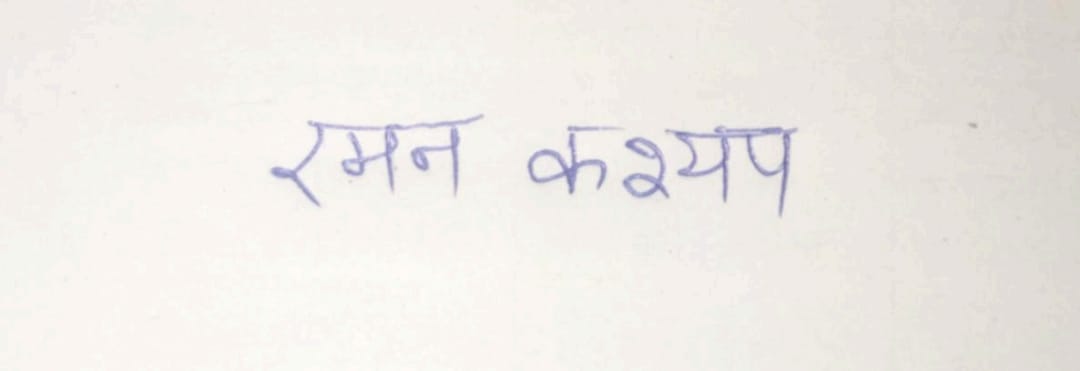 रमन कश्यप